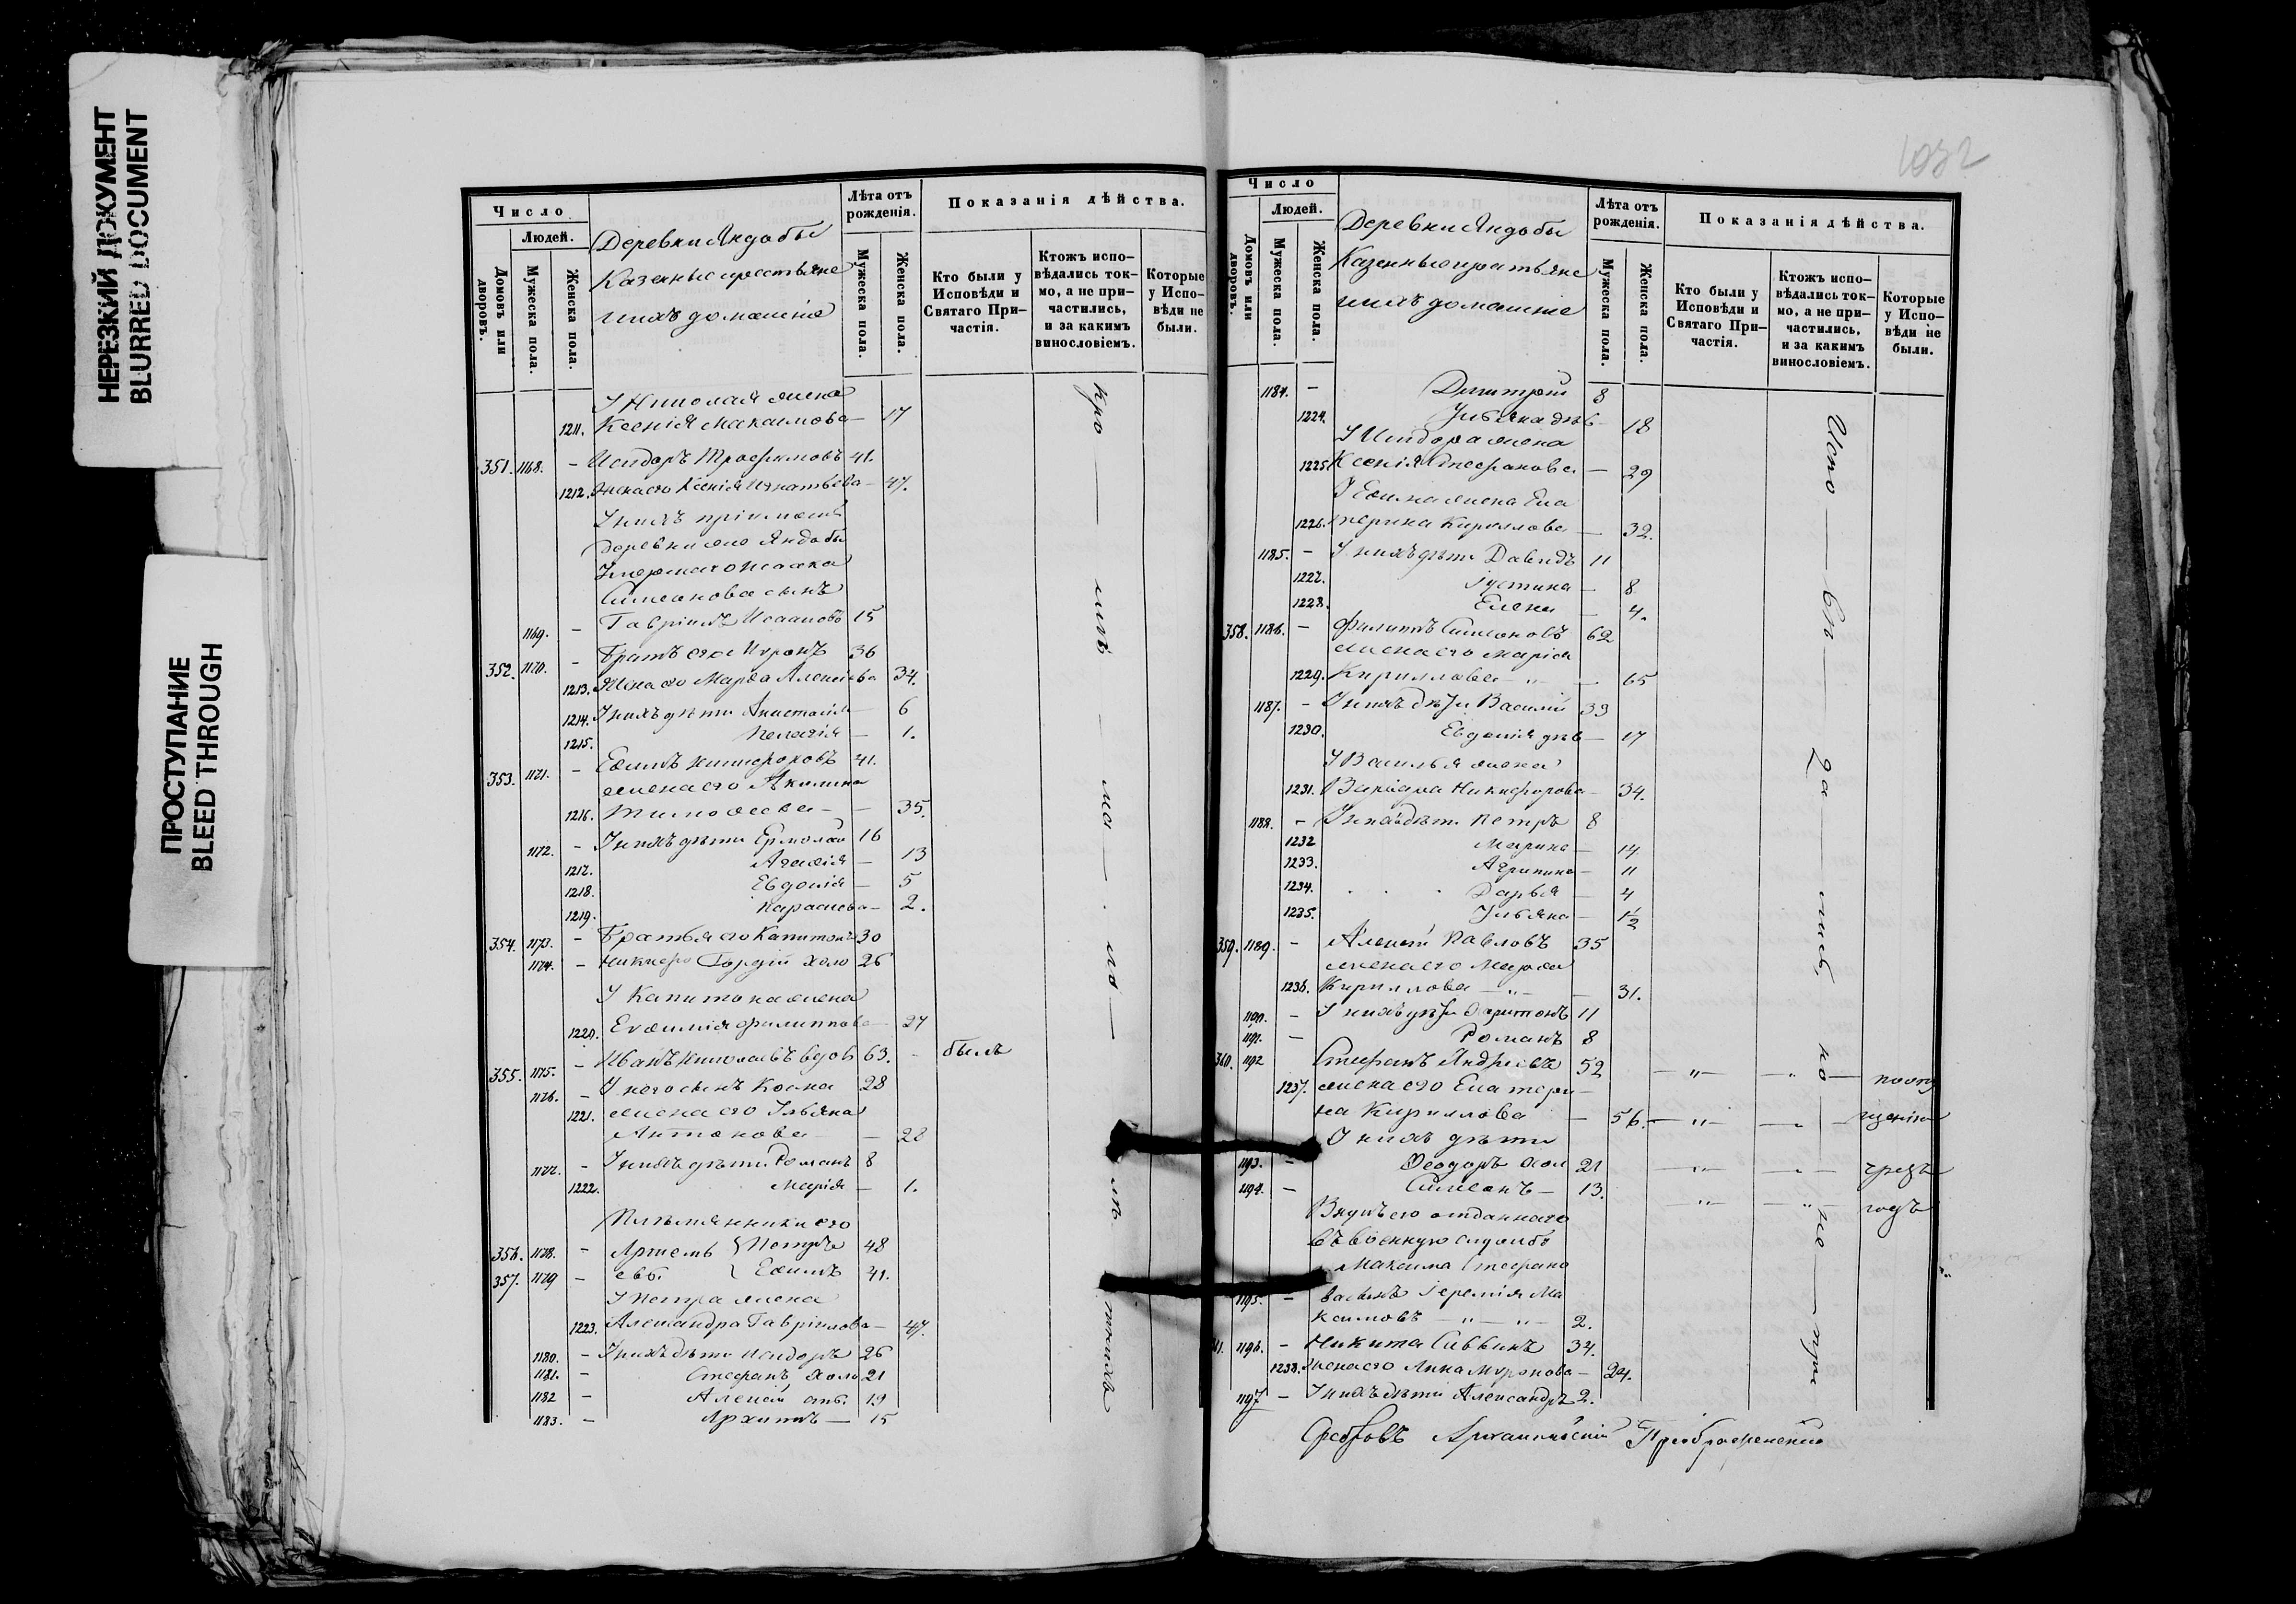 НЕРЕЗКИЙ ДОКУМЕНТ
BLURRED DOCUMENT
ПРОСТУПАНИЕ
BLEED THROUGH
Число
Людей.
Домовъ или дворовъ.
Мужеска пола.
Женска пола.
Деревни Яндобы
Казенные крестьяне
и ихъ домашніе
Лѣта отъ рожденія.
Мужеска пола.
Женска пола.
Показанія дѣйства.
Кто были у Исповѣди и Святаго Причастія.
Ктожъ исповѣдались токмо, а не причастились, и за какимъ винословіемъ.
Которые у Исповѣди не были.
У Николая жена
1211. Ксенія Макаимова — 17
351. 1168. — Исидоръ Трофимовъ 41.
1212. Жена его Ксенія Игнатьева — 47.
У нихъ пріимышъ
деревни же Яндобы
Умершаго Исаака
Симеонова сынъ
1169. — Гавріилъ Исааковъ 15
352. 1170. — Братъ его Миронъ 36
1213. Жена его Марѳа Алексѣева 34.
1214. У нихъ дѣти Анастасія — 6
1215. Пелагія — 1.
353. 1171. — Евѳимъ Никифоровъ 41.
жена его Акилина
1216. Тимоѳеева — — 35.
1172. — У нихъ дѣти Ермолай 16
1217. Агаѳія — 13
1218. Евдокія — 5
1219. Параскева — 2.
354. 1173. — Братья его Капитонъ 30
1174. — Никифо Гордій холо 26
У Капитона жена
1220. Евѳимія Филиппова — 27
355. 1175. — Иванъ Николаевъ вдов 63. — былъ
1176. — У него сынъ Косма 28
1221. жена его Ульяна
Антонова — — 28
1177. — У нихъ дѣти Романъ 8
1222. Марія — 1.
Племянники его
356. 1178. — Артемь } Петръ 48
357. 1179 — евы. } Евѳимъ 41.
У Петра жена
1223. Александра Гавріилова — 47.
1180. — У нихъ дѣти Исидоръ 26
1181. — Стефанъ, холо 21
1182 — Алексій отб. 19
1183. — Архипъ — 15
1032
Число
Людей.
Домовъ или дворовъ.
Мужеска пола.
Женска пола.
Деревни Яндобы
Казенные крестьяне
и ихъ домашніе
Лѣта отъ рожденія.
Мужеска пола.
Женска пола.
Показанія дѣйства.
Кто были у Исповѣди и Святаго Причастія.
Ктожъ исповѣдались токмо, а не причастились, и за какимъ винословіемъ.
Которые у Исповѣди не были.
1184. — Димитрій 8
1224. Ульяна дѣв — 18
У Исидора жена
1225. Ксенія Стефанова — 29
У Евѳима жена Ека
1226. терина Кириллова — 32.
1185. — У нихъ дѣти Давидъ 11
1227. Іустина — 8
1228. Елена — 4.
358. 1186. — Филиппъ Симеоновъ 62
жена его Марія
1229. Кириллова — " — 65
1187. — У нихъ дѣти Василій 39
1230. Евдокія дѣв — 17
У Василья жена
1231. Варвара Никифорова — 34.
1188. — У нихъ дѣти Петръ 8
1232 Марина — 14
1233. Агрипина — 11
1234. Дарья — 4
1235. Ульяна — 1½
359. 1189. — Алексій Павловъ 35
жена его Марѳа
1236. Кириллова — " — 31.
1190. — У нихъ дѣти Харитонъ 11
1191. — Романъ 8
360. 1192 Стефанъ Андреевъ 52 — " — — " —
1237. жена его Екатери—
на Кириллова — 56. — " —
У нихъ дѣти
1193. — Ѳеодоръ хол 21 — " — чрезъ
1194. — Симеонъ — 13. — " — годъ
Внукъ его отданнаго
въ военную службу
Максима Стефано
1195. — ва сынъ Іеремія Ма
ксимовъ — " — " — 2.
1196. — Никита Саввинъ 34.
1238. Жена его Анна Миронова — 24.
1197 — У нихъ дѣти Александръ 2.
Преображенскій